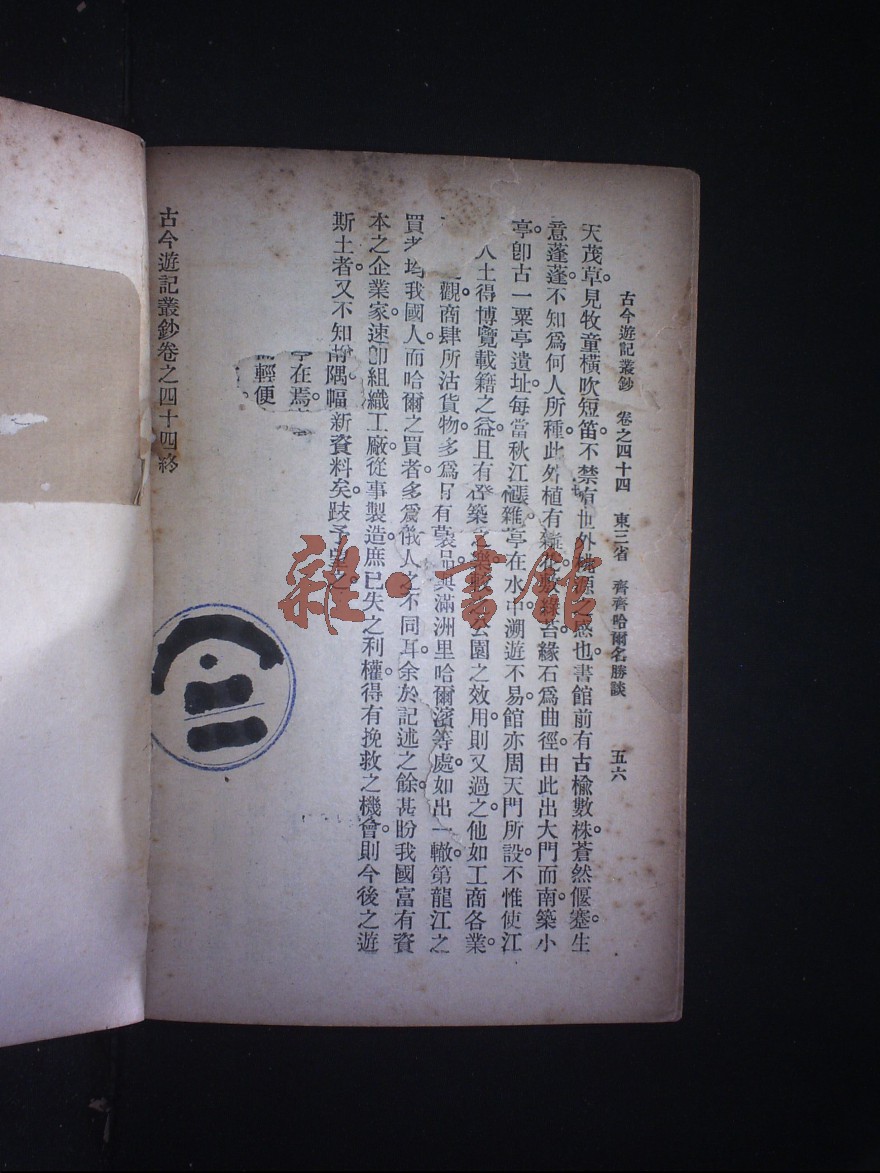 古今遊記叢鈔 卷之四十四 東三省 齊齊哈爾名勝談 五六
天茂草。見牧童橫吹短笛。不禁有世外桃源之感也。書館前有古榆數株。蒼然偃蹇。生
意蓬蓬。不知爲何人所種。此外植有雜花。敷綠苔。緣石爲曲徑。由此出大門而南。築小
亭。卽古一粟亭遺址。每當秋江漲。亭在水中。溯遊不易。館亦周天門所設。不惟使江
人士得博覽載籍之益。且有登築之樂。公園之效用。則又過之。他如工商各業。
觀。商肆所沽貨物。多爲日有裝品。與滿洲里哈爾濱等處。如出一轍。第龍江之
買者均我國人。而哈爾之買者。多爲俄人之不同耳。余於記述之餘。甚盼我國富有資
本之企業家。速卽組織工廠。從事製造。庶已失之利權。得有挽救之機會。則今後之遊
斯土者。又不知增隅幅新資料矣。跂予望之。
在焉。
輕便
古今遊記叢鈔卷之四十四終
雜·書館